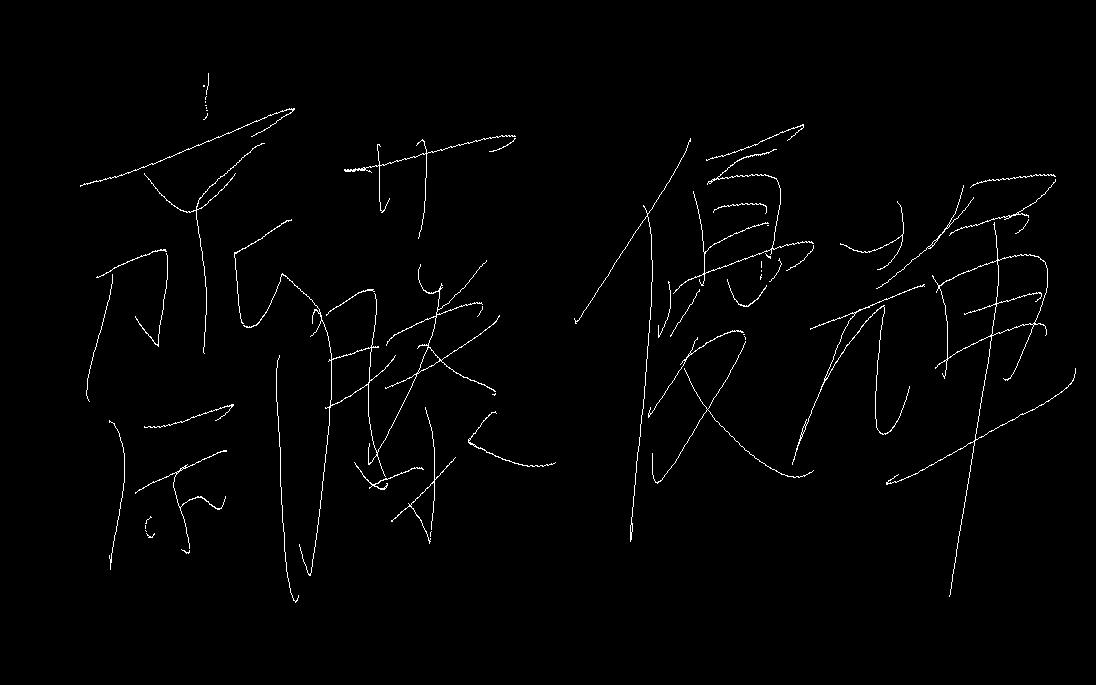 齋藤優輝